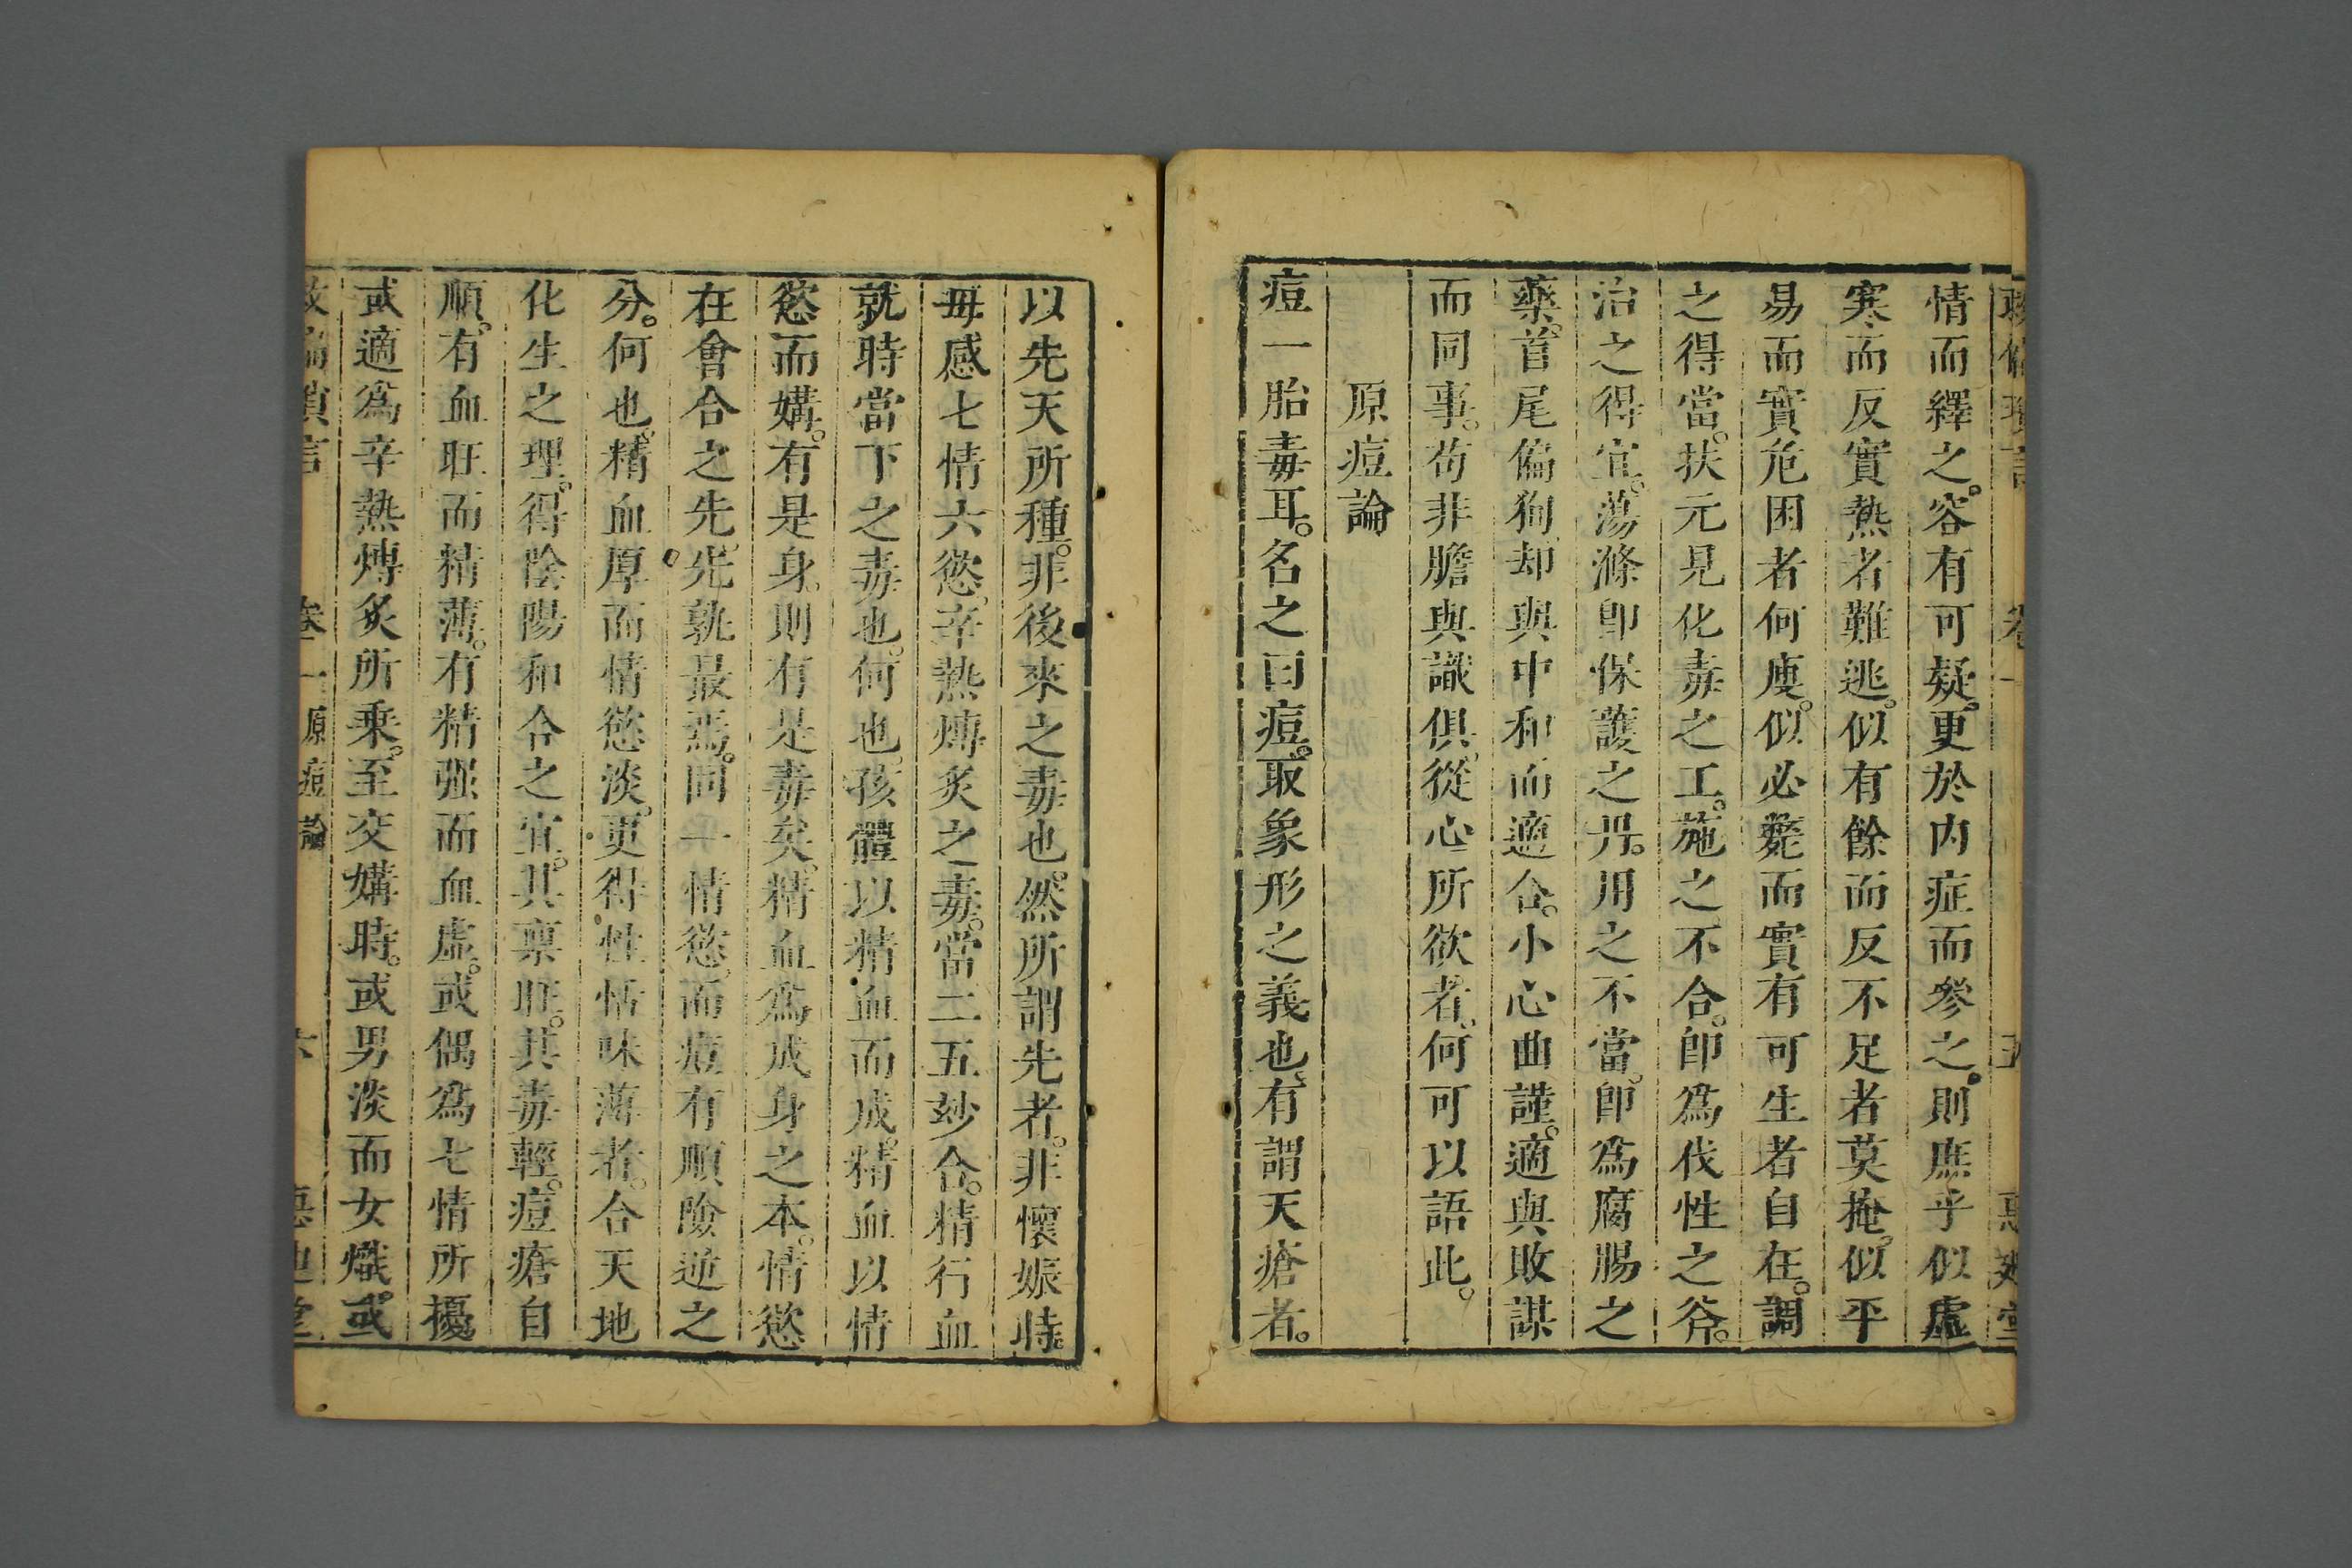 情而繹之。容有可疑。更於內症而參之。則庶乎似虛
寒而反實熱者難逃。似有餘而反不足者莫掩。似平
易而實危困者何廋。似必斃而實有可生者自在。調
之得當。扶元見化毒之工。施之不合。卽爲伐性之斧。
治之得宜。蕩滌卽保護之丹。用之不當。卽爲腐腸之
藥。首尾偏狥。却與中和而適合。小心曲謹。適與敗謀
而同事。苟非膽與識俱。從心所欲者。何可以語此。
原痘論
痘一胎毒耳。名之曰痘。取象形之義也。有謂天瘡者。
以先天所種。非後來之毒也。然所謂先者。非懷娠時。
毋感七情六慾。辛熱煿炙之毒。當二五玅合。精行血
就時當下之毒也。何也。孩體以精血而成。精血以情
慾而媾。有是身。則有是毒矣。精血爲成身之本。情慾
在會合之先。先孰最焉。同一情慾。而痘有順險逆之
分。何也。精血厚而情慾淡。更得性恬味薄者。合天地
化生之理。得陰陽和合之宜。其稟旺。其毒輕。痘瘡自
順。有血旺而精薄。有精强而血虛。或偶爲七情所擾
或適爲辛熱煿炙所乗。至交媾時。或男淡而女熾。或
卷一 原痘論 六